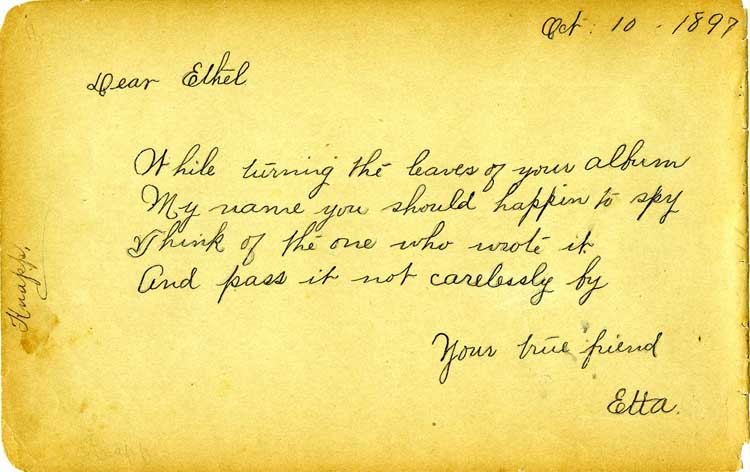 Oct. 10 - 1897
Dear Ethel
While turning the leaves of your album
My name you should happin to spy
Think of the one who wrote it.
And pass it not carelessly by
Your true friend
Etta.
Knapp.